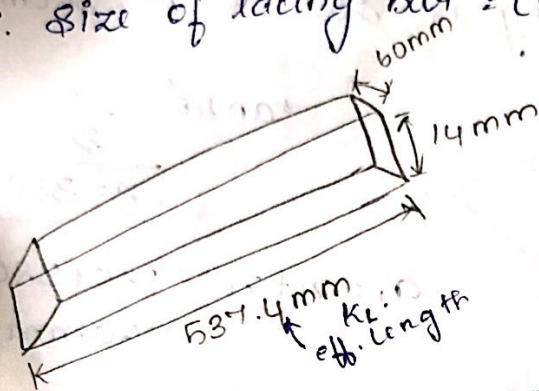 : Size of lacing bar = (
60mm
14mm
537.4mm
KL :
eff. length